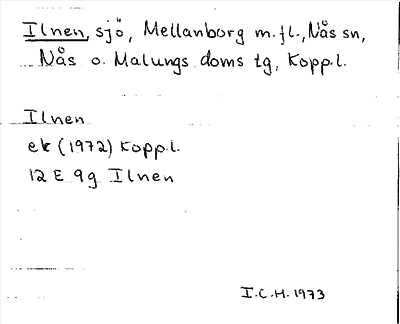 Ilnen, sjö, Mellanborg m.fl., Nås sn,
Nås o. Malungs doms tg, Kopp.l.
Ilnen
ek (1972) Kopp.l.
12 E 9g Ilnen
I.C.H. 1973